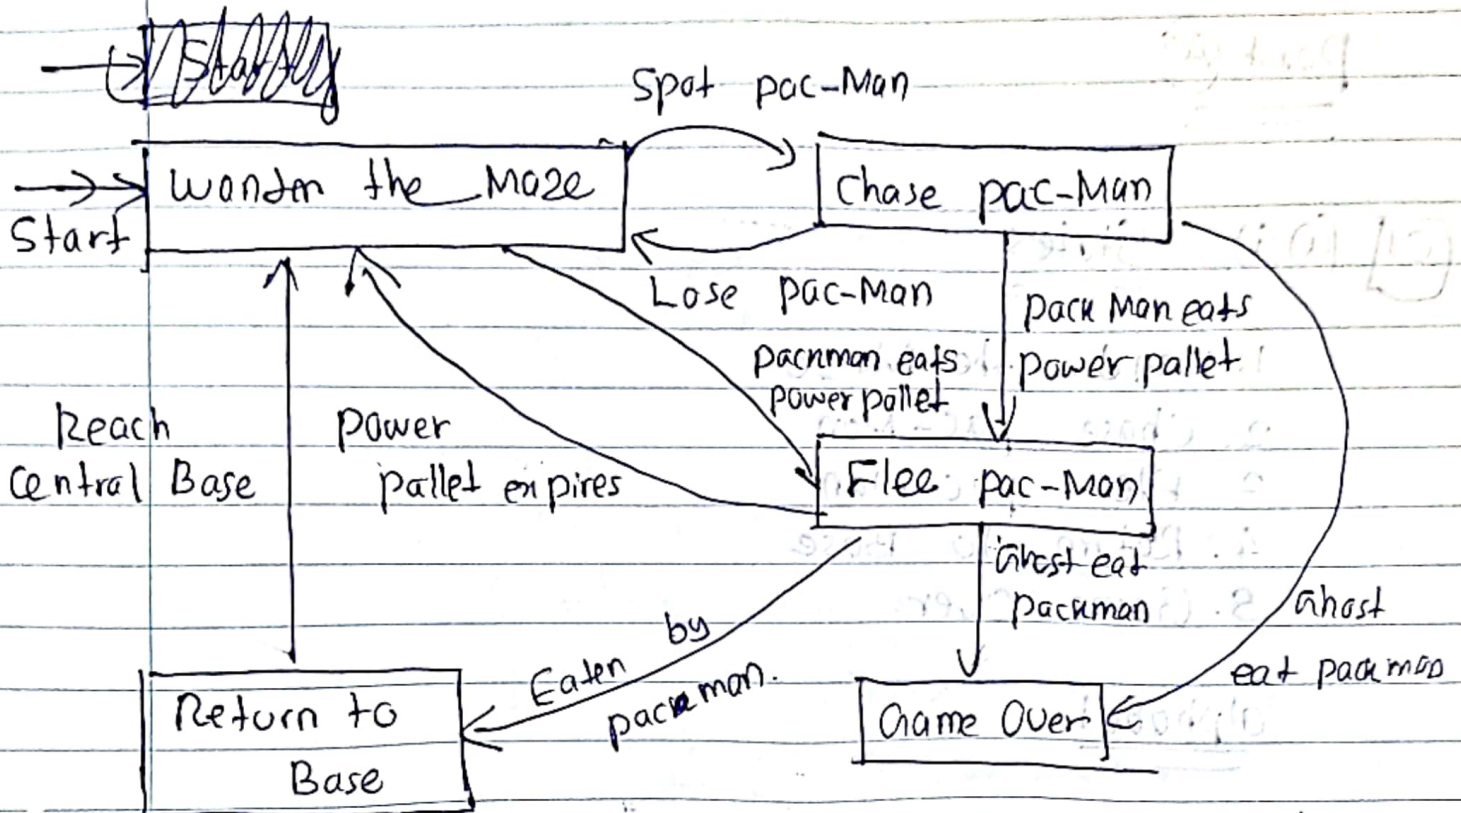 Spot pac-Man
Wander the Maze
Chase pac-Man
Start
Lose pac-Man
pack Man eats
power pallet
pacnman eats
power pallet
Reach
Central Base
power
pallet expires
Flee pac-Man
Ghost eat
packman
Ghost
eat packman
Eaten by
packman.
Return to
Base
Game Over